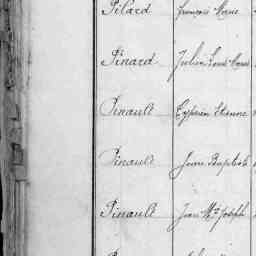 Pilard François Marie
Pinard Julien Louis Marie
Pinault Cyprien Etienne
Pinault Jean Baptiste
Pinault Jean Mie Joseph